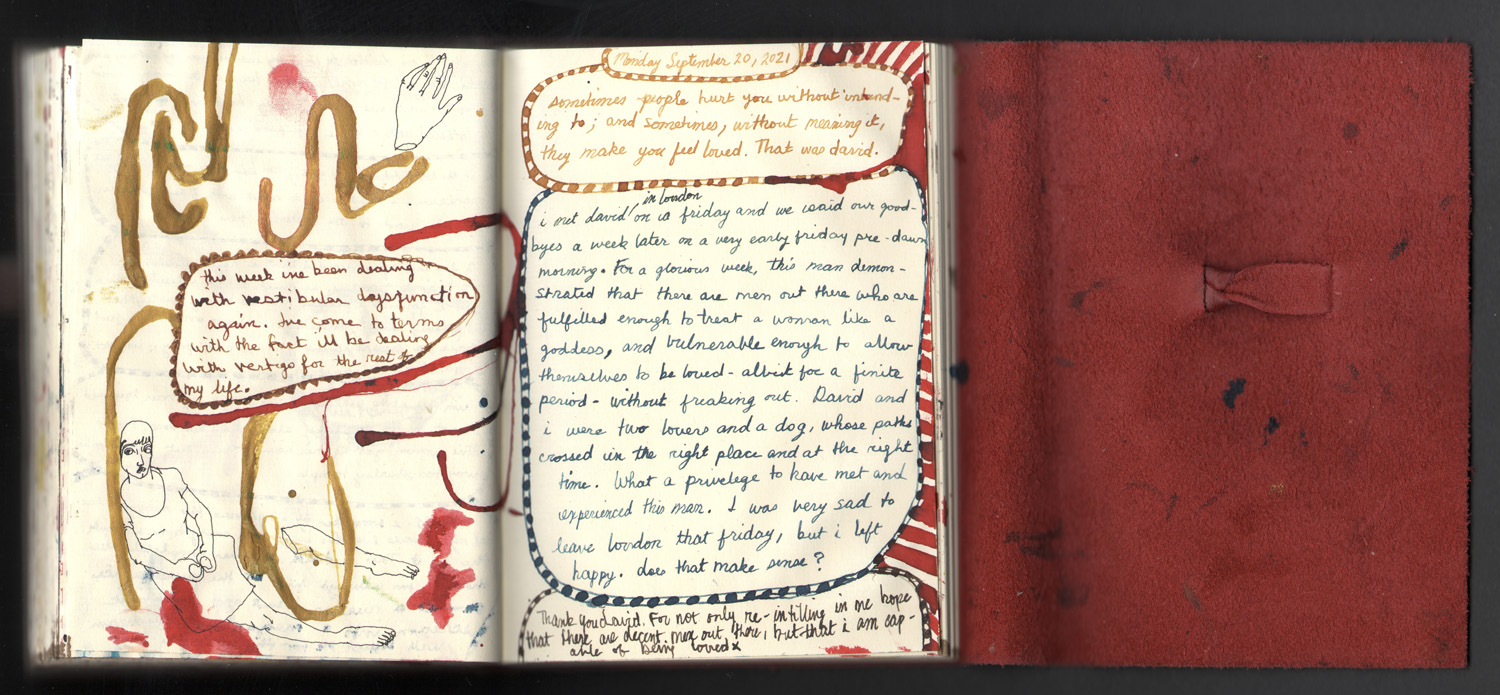 this week i've been dealing
with vestibular daysfunction
again. I've come to terms
with the fact i'll be dealing
with vertigo for the rest of
my life.
Monday September 20, 2021
sometimes people hurt you without intend-
ing to; and sometimes, without meaning it,
they make you feel loved. That was david.
in london
i met david on a friday and we said our good-
byes a week later on a very early friday pre-dawn
morning. For a glorious week, this man demon-
strated that there are men out there who are
fulfilled enough to treat a woman like a
goddess, and vulnerable enough to allow
themselves to be loved - albeit for a finite
period - without freaking out. David and
i were two lovers and a dog, whose paths
crossed in the right place and at the right
time. What a privelege to have met and
experienced this man. I was very sad to
leave london that friday, but i left
happy. does that make sense?
Thank you david. For not only re-intilling in me hope
that there are decent men out there, but that i am cap-
able of being loved x